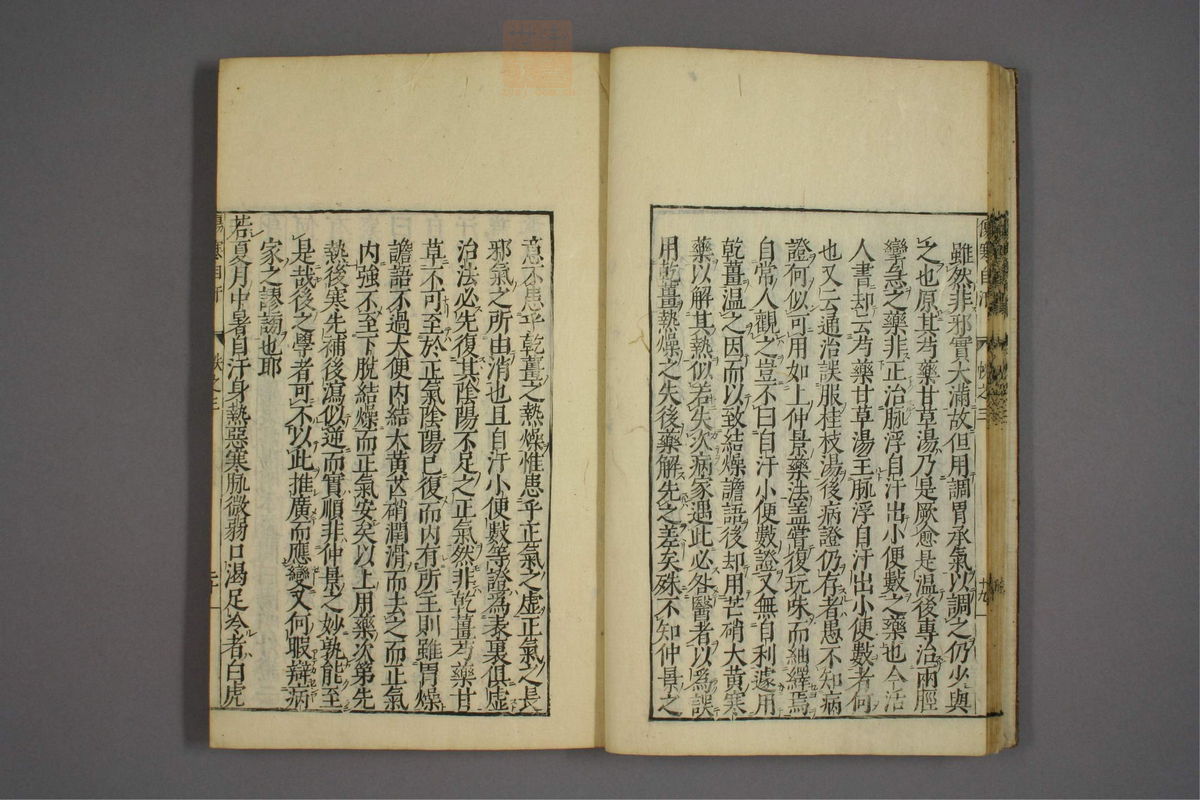 雖然非邪實大滿故但用調胃承氣以調之仍少與
之也原其芍藥甘草湯乃是厥愈足溫後專治兩脛
攣急之藥非正治脉浮自汗出小便數之藥也今活
人書却云芍藥甘草湯主脉浮自汗出小便數者何
也又云通治誤服桂枝湯後病證仍存者愚不知病
證何似可用如上仲景藥法盖嘗復玩味而紬繹焉
自常人觀之豈不曰自汗小便數證又無自利遽用
乾薑溫之因而以致結燥譫語後却用芒硝大黃寒
藥以解其熱似若失次病家遇此必咎醫者以爲誤
用乾薑熱燥之失後藥解先之差矣殊不知仲景之
意不患乎乾薑之熱燥惟患乎正氣之虛正氣之長
邪氣之所由消也且自汗小便數等證爲表裏俱虛
治法必先復其陰陽不足之正氣然非乾薑芍藥甘
草不可至於正氣陰陽已復而内有所主則雖胃燥
譫語不過大便内結大黃芒硝潤滑而去之而正氣
内強不至下脫結燥而正氣安矣以上用藥次第先
熱後寒先補後瀉似逆而實順非仲景之妙孰能至
是哉後之學者可不以此推廣而應變又何暇辯病
家之謬誚也耶
若夏月中暑自汗身熱惡寒脉微弱口渴足冷者白虎